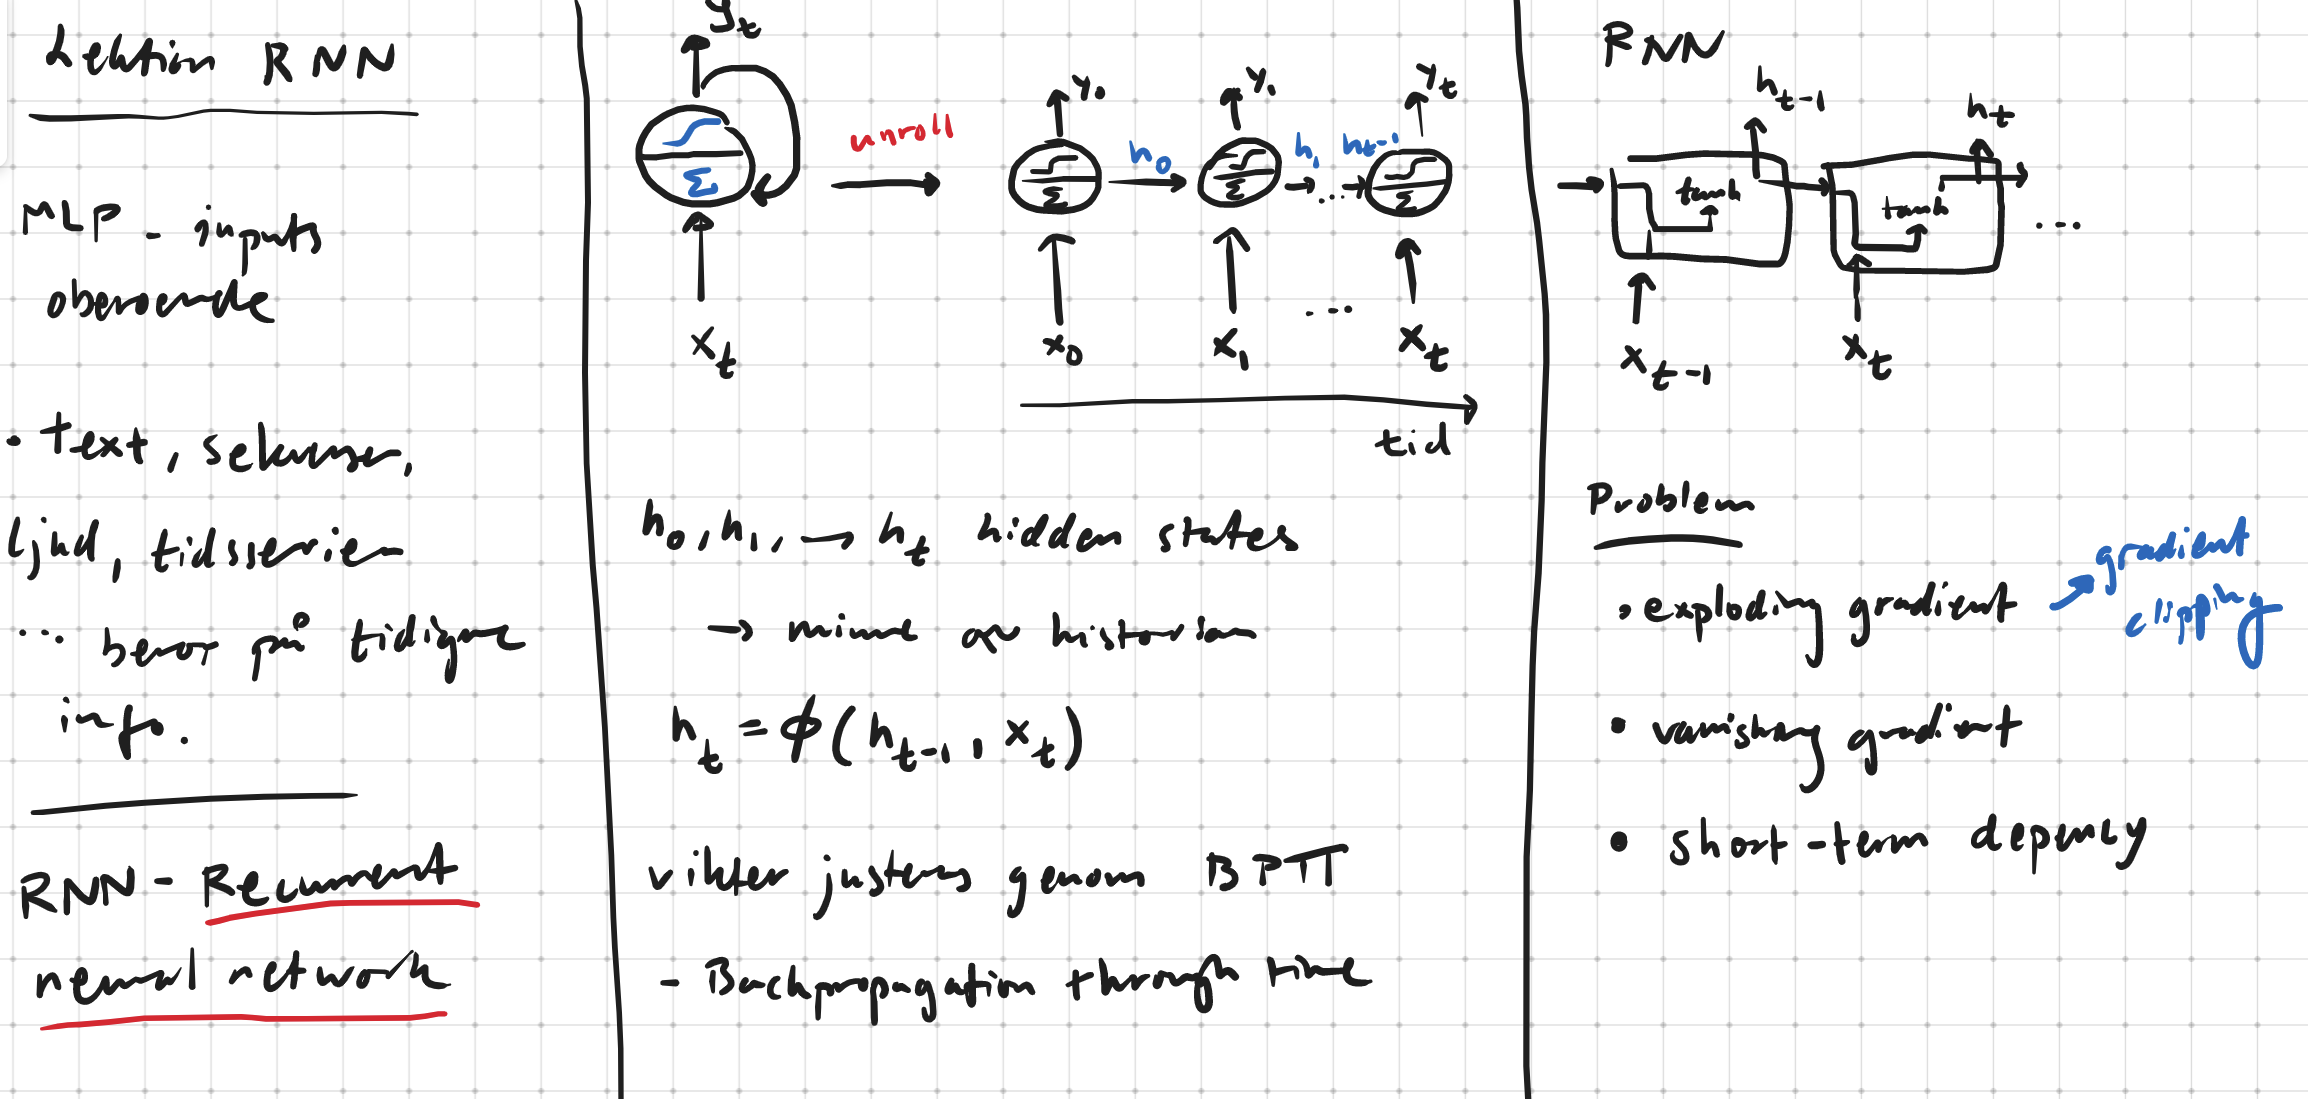 Lektion RNN
MLP - inputs
oberoende
• text, sekvenser,
ljud, tidsserier
... beror på tidigare
info.
RNN - Recurrent
neural network
y_t
Σ
x_t
unroll
y_0 y_1 y_t
h_0 h_1 h_{t-1}
Σ Σ ... Σ
x_0 x_1 ... x_t
tid
h_0, h_1, → h_t hidden states
→ minne av historien
h_t = ϕ(h_{t-1}, x_t)
vikter justeras genom BPTT
- Backpropagation through time
RNN
h_{t-1} h_t
tanh tanh ...
x_{t-1} x_t
Problem
• exploding gradient → gradient
clipping
• vanishing gradient
• short-term depency